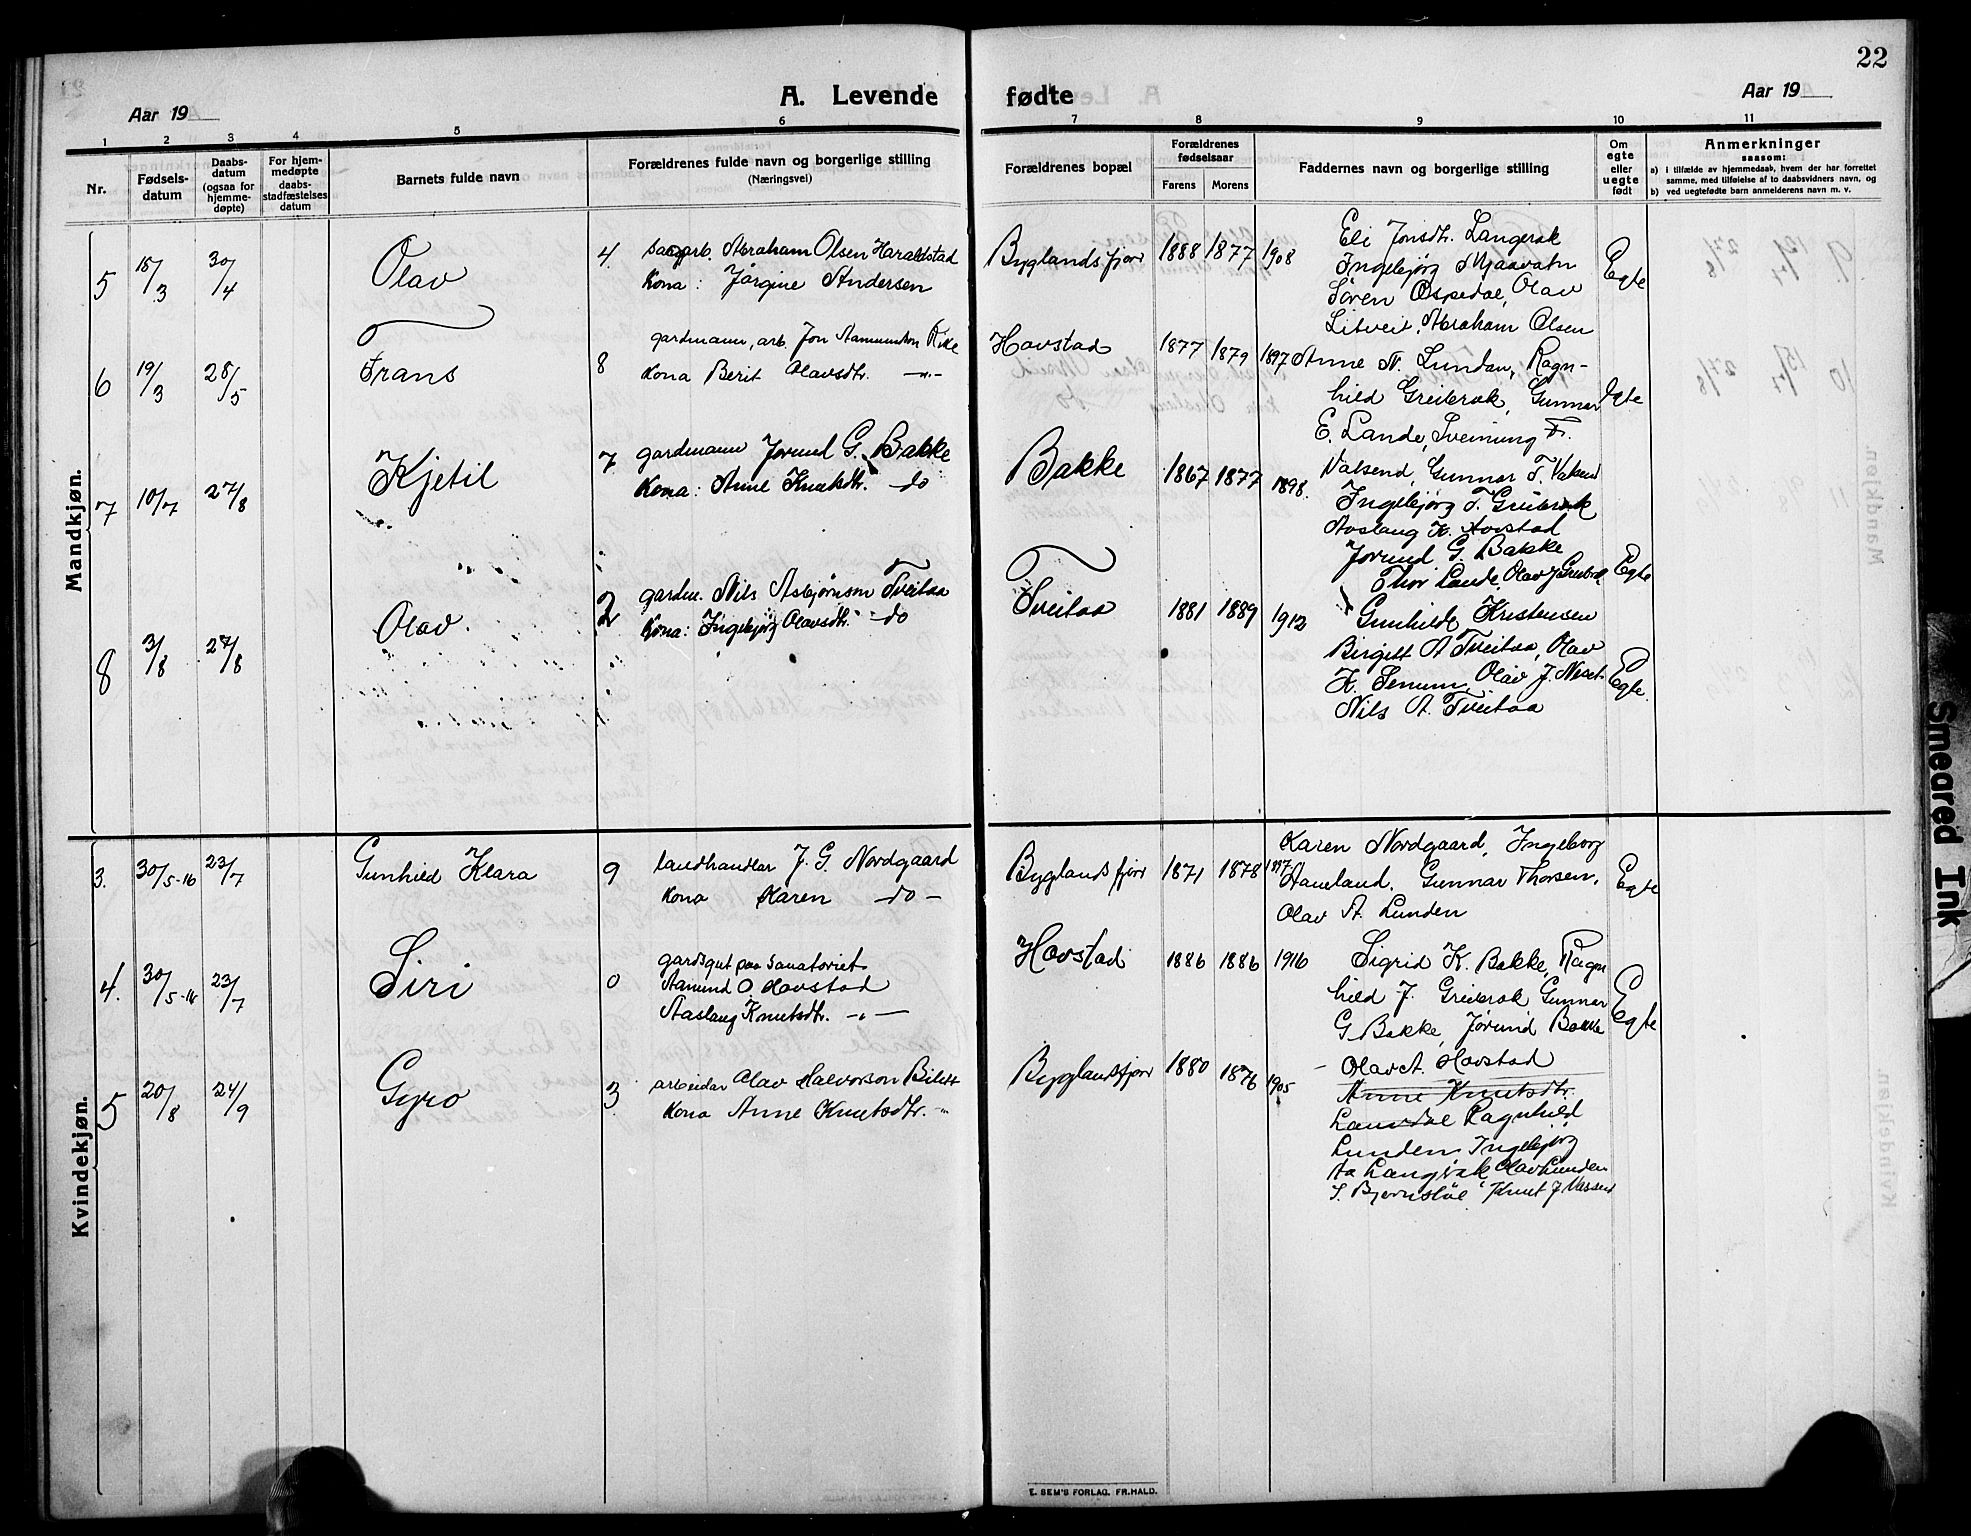 22
Aar 19
A. Levende fødte
Aar 19
1 2 3 4 5 6 7 8 9 10 11
Nr.
Fødsels-
datum
Daabs-
datum
(ogsaa for
hjemme-
døpte)
For hjem-
medøpte
daabs-
stadfæstelses
datum
Barnets fulde navn
Forældrenes fulde navn og borgerlige stilling
(Næringsvei)
Forældrenes bopæl
Forældrenes
fødselsaar
Farens Morens
Faddernes navn og borgerlige stilling
Om
egte
eller
uegte
født
Anmerkninger
saasom:
a) i tilfælde av hjemmedaab, hvem der har forrettet
samme, med tilføielse af to daabsvidners navn, og
b) ved uegtefødte barn anmelderens navn m. v.
Mandkjøn.
5 15/3 30/4 Olav 4. Abraham Olsen Haraldstad
Kona: Jørgine Andersen
Byglandsfjor 1888 1877 1908
Eli Jonsdtr. Langerak
Ingebjørg Mjaavatn
Søren Ospedal, Olav
Litveit, Abraham Olsen
Egte
6 19/3 28/5 Frans 8 gardmann, arb. Jon Aamundson Rike
Kona Berit Olavsdtr. -"-
Hovstad 1877 1879 1897
Anne N. Lunden, Ragn-
hild Greibrok, Gunnar
E. Lande, Sveinung F.
Valsend, Gunnar T. Valsend
Egte
7 10/7 27/8 Kjetil 7 gardmann Jorund G. Bakke
Kona: Anne Knutsdtr. do
Bakke 1867 1877 1898.
Ingebjørg T. Greibrok
Aaslaug K. Hovstad
Jorund G. Bakke
Thor Lande, Olav J Greibrok
Egte
8 3/8 27/8 Olav. 2 gardm. Nils Asbjørnson Tveitaa
Kona: Ingebjørg Olavsdtr. do
Tveitaa 1881 1889 1912
Gunhilde Kristensen
Birgitt A Tveitaa, Olav
K. Senum, Olav J. Neset
Nils A. Tveitaa
Egte
Kvindekjøn.
3. 30/5-16 23/7 Gunhild Klara 9 landhandlar J. G. Nordgaard
Kona Karen -do-
Byglandsfjor 1871 1878 1897
Karen Nordgaard, Ingeborg
Haueland. Gunnar Thorsen.
Olav A. Lunden
Egte
4. 30/5-16 23/7 Siri 0 gardsgut paa Sanatoriet
Aamund O. Hovstad
Aaslaug Knutsdtr. -"-
Hovstad 1886 1886 1916
Sigrid K. Bakke, Ragn
hild J. Greibrok Gunnar
G. Bakke, Jørund Bakke
Olav A. Hovstad
Egte
5 20/8 24/9 Gyro 3 arbeidar Olav Halvorson
Kona Anne Knutsdtr. -"-
Byglandsfjor 1880 1876 1905
Anne Knutsdtr.
Ragnhild
Lunden Ingebjørg
Aa Langrak Olav Lunden
S. Bjørnstøl Knut J
E. SEM'S FORLAG. FR.HALD.
Smeared Ink